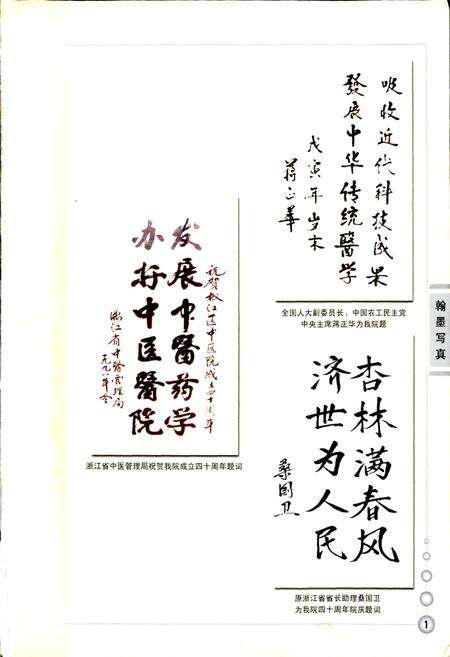 吸收近代科技成果
發展中华传统醫学
戊寅年岁末
蒋正華
全国人大副委员长，中国农工民主党
中央主席蒋正华为我院题
翰墨写真
发展中醫药学
办好中医醫院
浙江省中醫管理局
一九九八年冬
浙江省中医管理局祝贺我院成立四十周年题词
杏林满春风
济世为人民
桑国卫
原浙江省省长助理桑国卫
为我院四十周年院庆题词
1